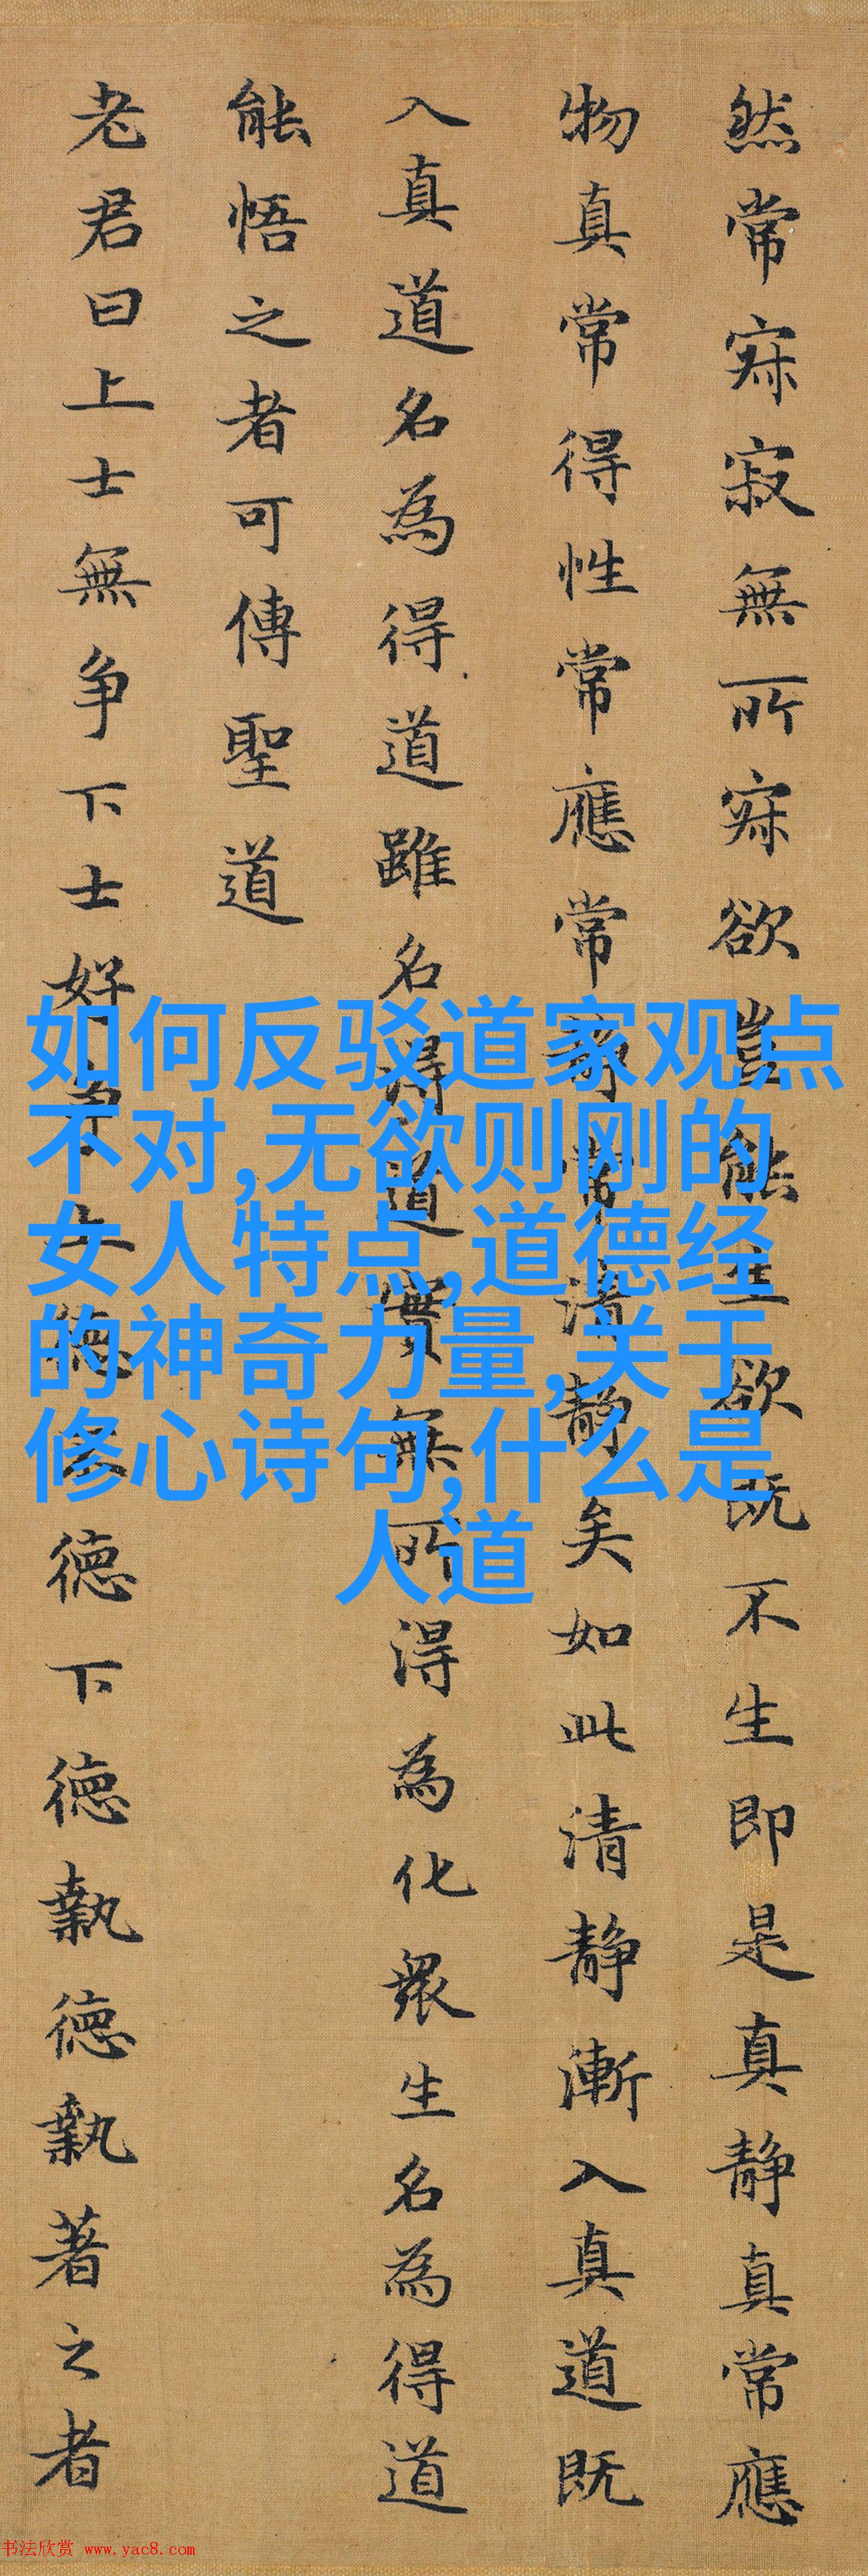 然常寂寂無所寂欲豈能生欲既不生即是真静真常應
物真常得性常應常静常清静矣如此清静漸入真道既
入真道名為得道雖名得道實無所得為化衆生名為得道
能悟之者可傳聖道
老君曰上士無争下士好争上德不德下德執德執著之者
如何反驳道家观点
不对,无欲则刚的
女人特点,道德经
的神奇力量,关于
修心诗句,什么是
人道
书法欣赏 www.yac8.com